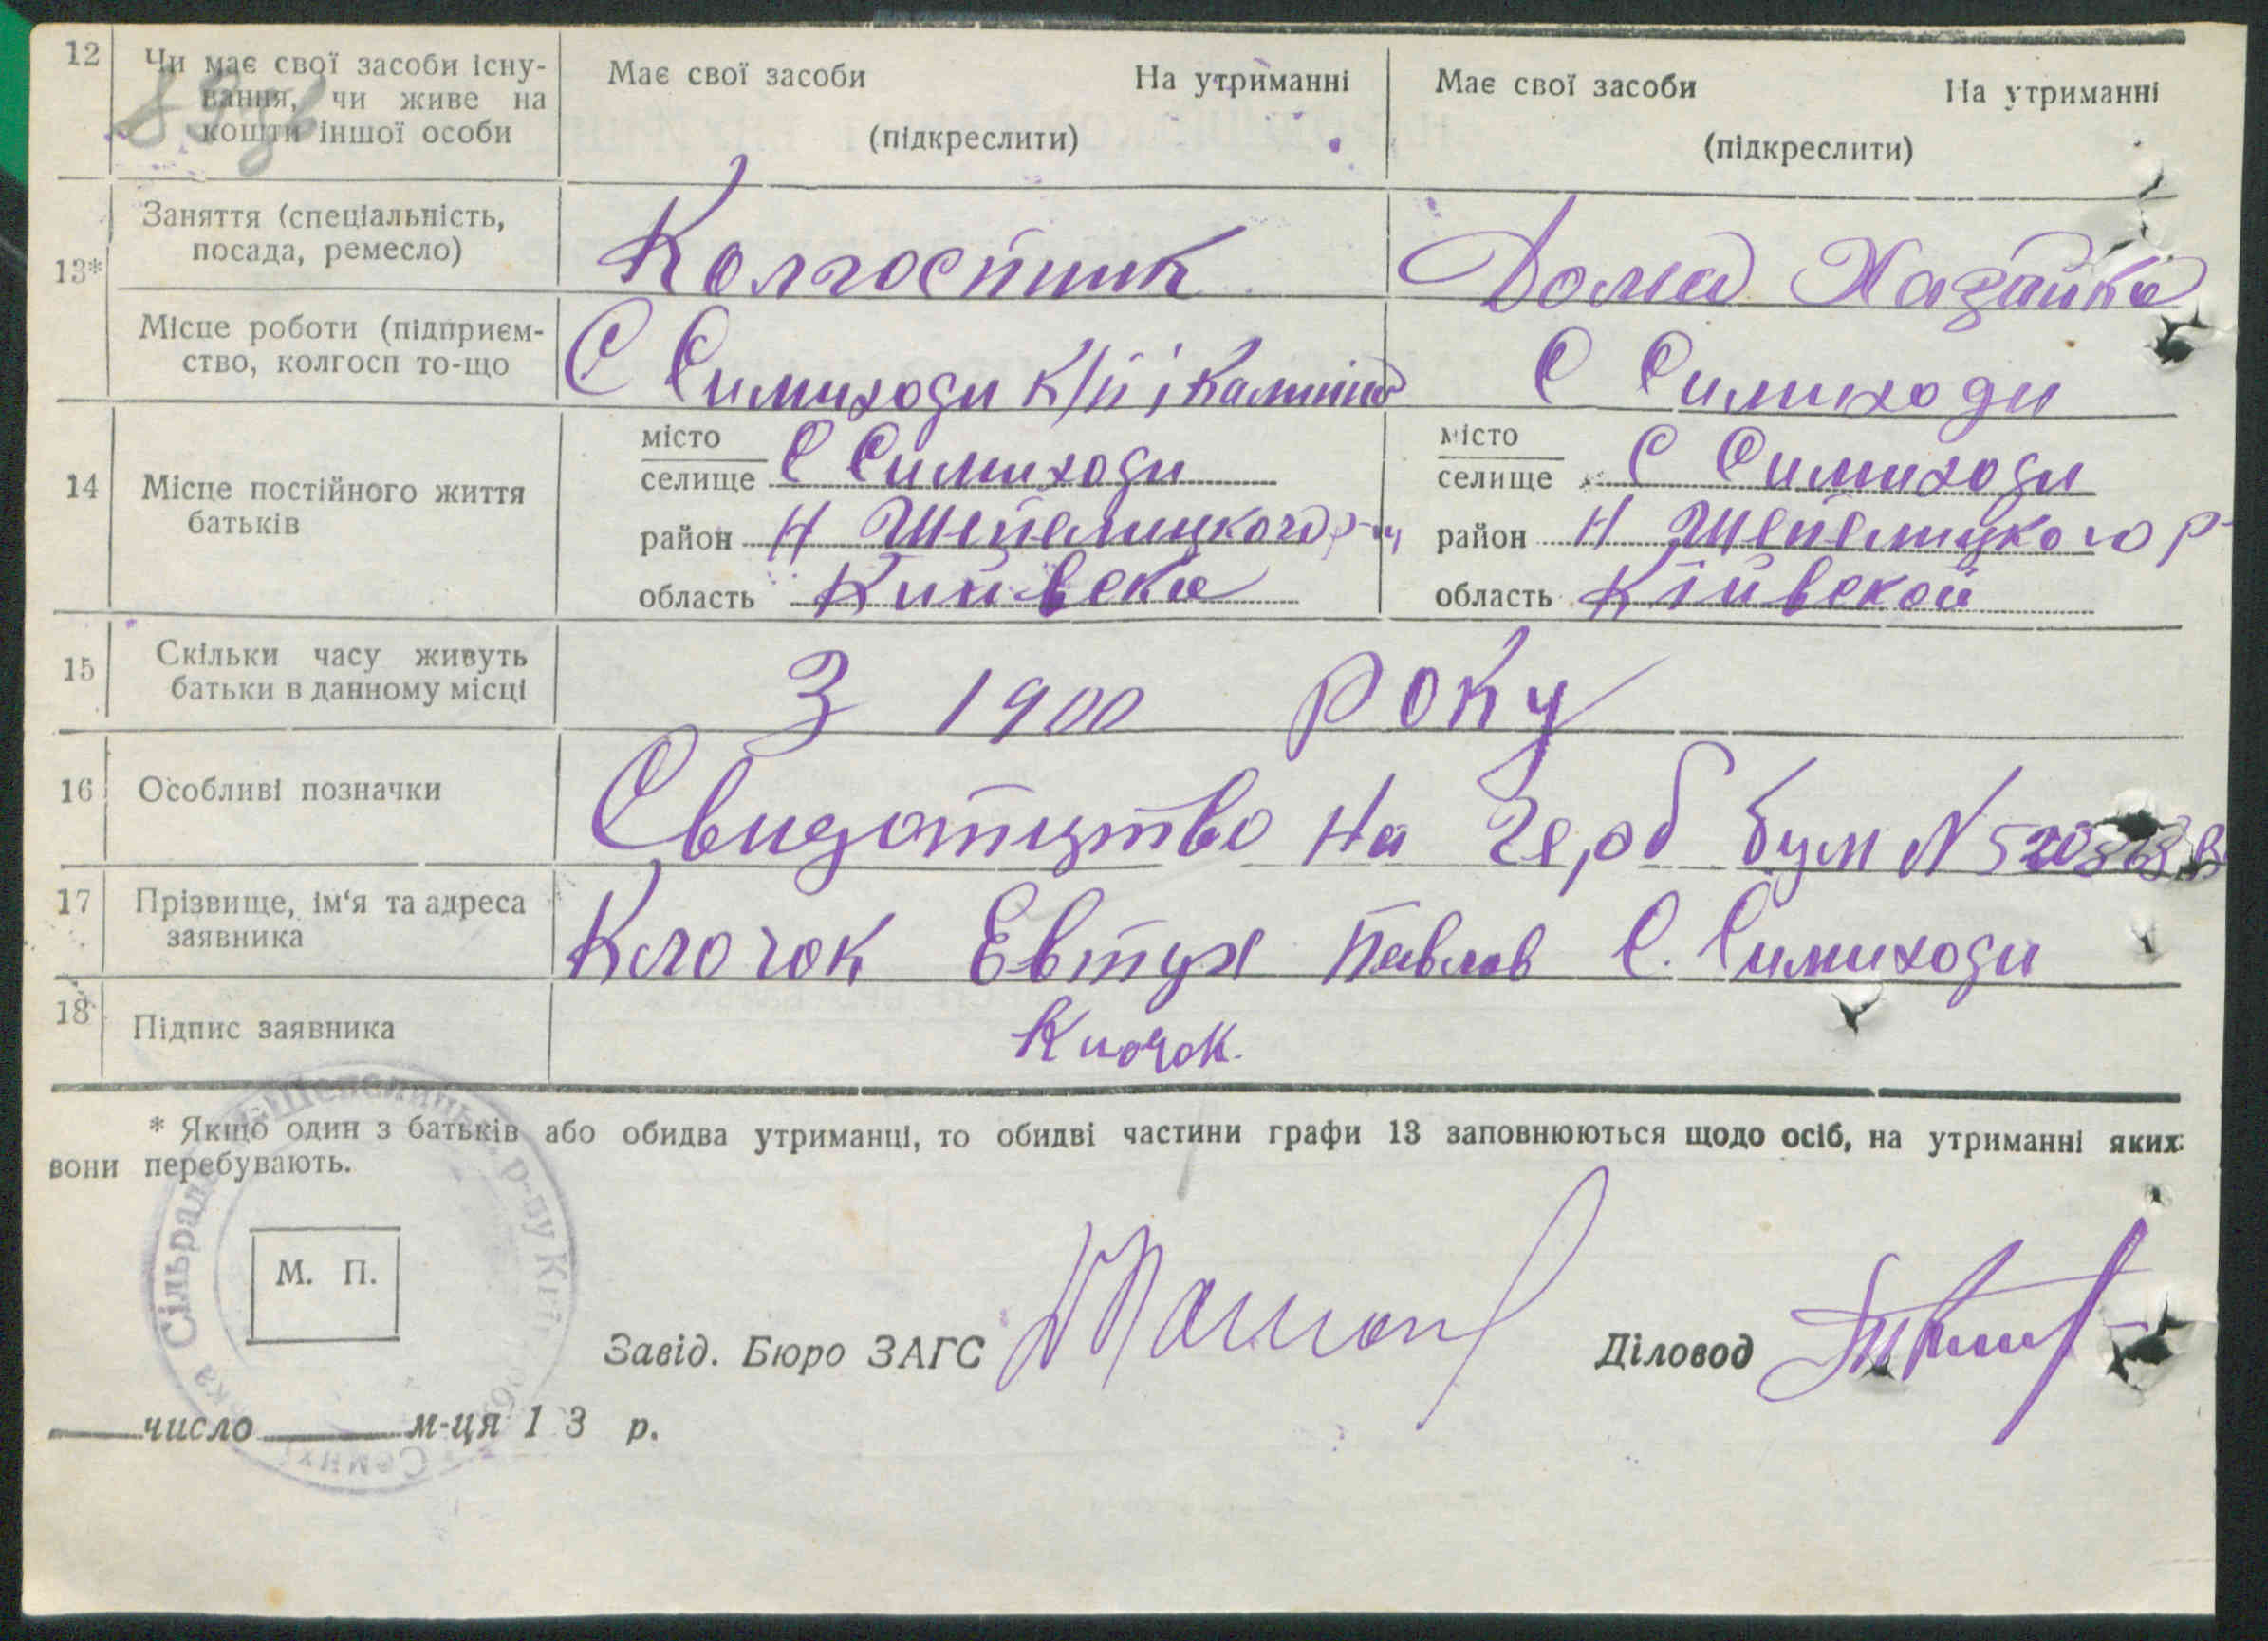 12 Чи має свої засоби існу- Має свої засоби На утриманні Має свої засоби На утриманні
вання, чи живе на
кошти іншої особи (підкреслити) (підкреслити)
13* Заняття (спеціальність, Колгоспник Дома Хазайка
посада, ремесло)
Місце роботи (підприєм- С Симиходи к/п і С Симиходи
ство, колгосп то-що
14 Місце постійного життя місто місто
батьків
селище С Симиходи селище С Симиходи
район Н Шепелицкого р-ну район Н Шепелицкого р
область Київска область Київской
15 Скільки часу живуть З 1900 року
батьки в данному місці
16 Особливі позначки Свидотцтво на Герб бум N
17 Прізвище, ім'я та адреса Клочок Евтух Павлов С. Симиходи
заявника
18 Підпис заявника Клочок.
* Якщо один з батьків або обидва утриманці, то обидві частини графи 13 заповнюються щодо осіб, на утриманні яких
вони перебувають.
М. П.
Завід. Бюро ЗАГС Діловод
число м-ця 1 3 р.
Сільрада Шепелицьк. р-ну